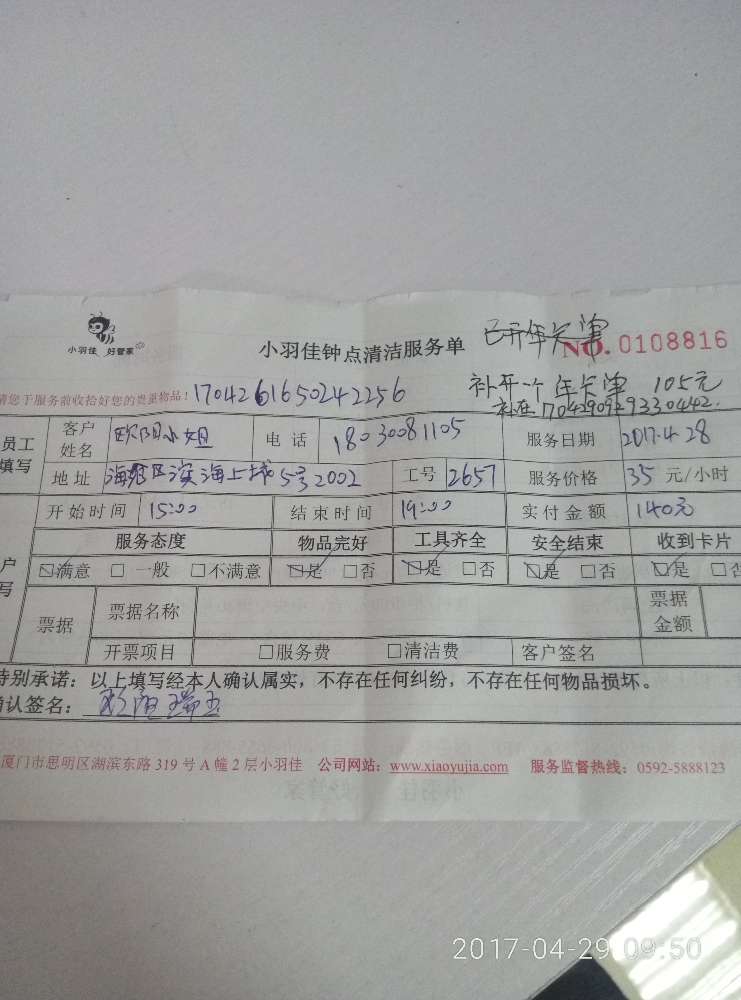 已开年卡单
小羽佳 好管家
小羽佳钟点清洁服务单
NO. 0108816
补开一个年卡单 105元
请您于服务前收拾好您的贵重物品！ 1704261650242256
补在 1704290929330442.
员工填写 客户姓名 欧阳小姐 电话 18030081105 服务日期 2017.4.28
地址 海沧区滨海上城5号2002 工号 2657 服务价格 35 元/小时
开始时间 15:00 结束时间 19:00 实付金额 140元
户写 服务态度 物品完好 工具齐全 安全结束 收到卡片
☑满意 □一般 □不满意 ☑是 □否 ☑是 □否 ☑是 □否 ☑是 □否
票据 票据名称 票据金额
开票项目 □服务费 □清洁费 客户签名
特别承诺：以上填写经本人确认属实，不存在任何纠纷，不存在任何物品损坏。
确认签名：
厦门市思明区湖滨东路 319 号 A 幢 2 层小羽佳 公司网站：www.xiaoyujia.com 服务监督热线：0592-5888123
2017-04-29 09:50